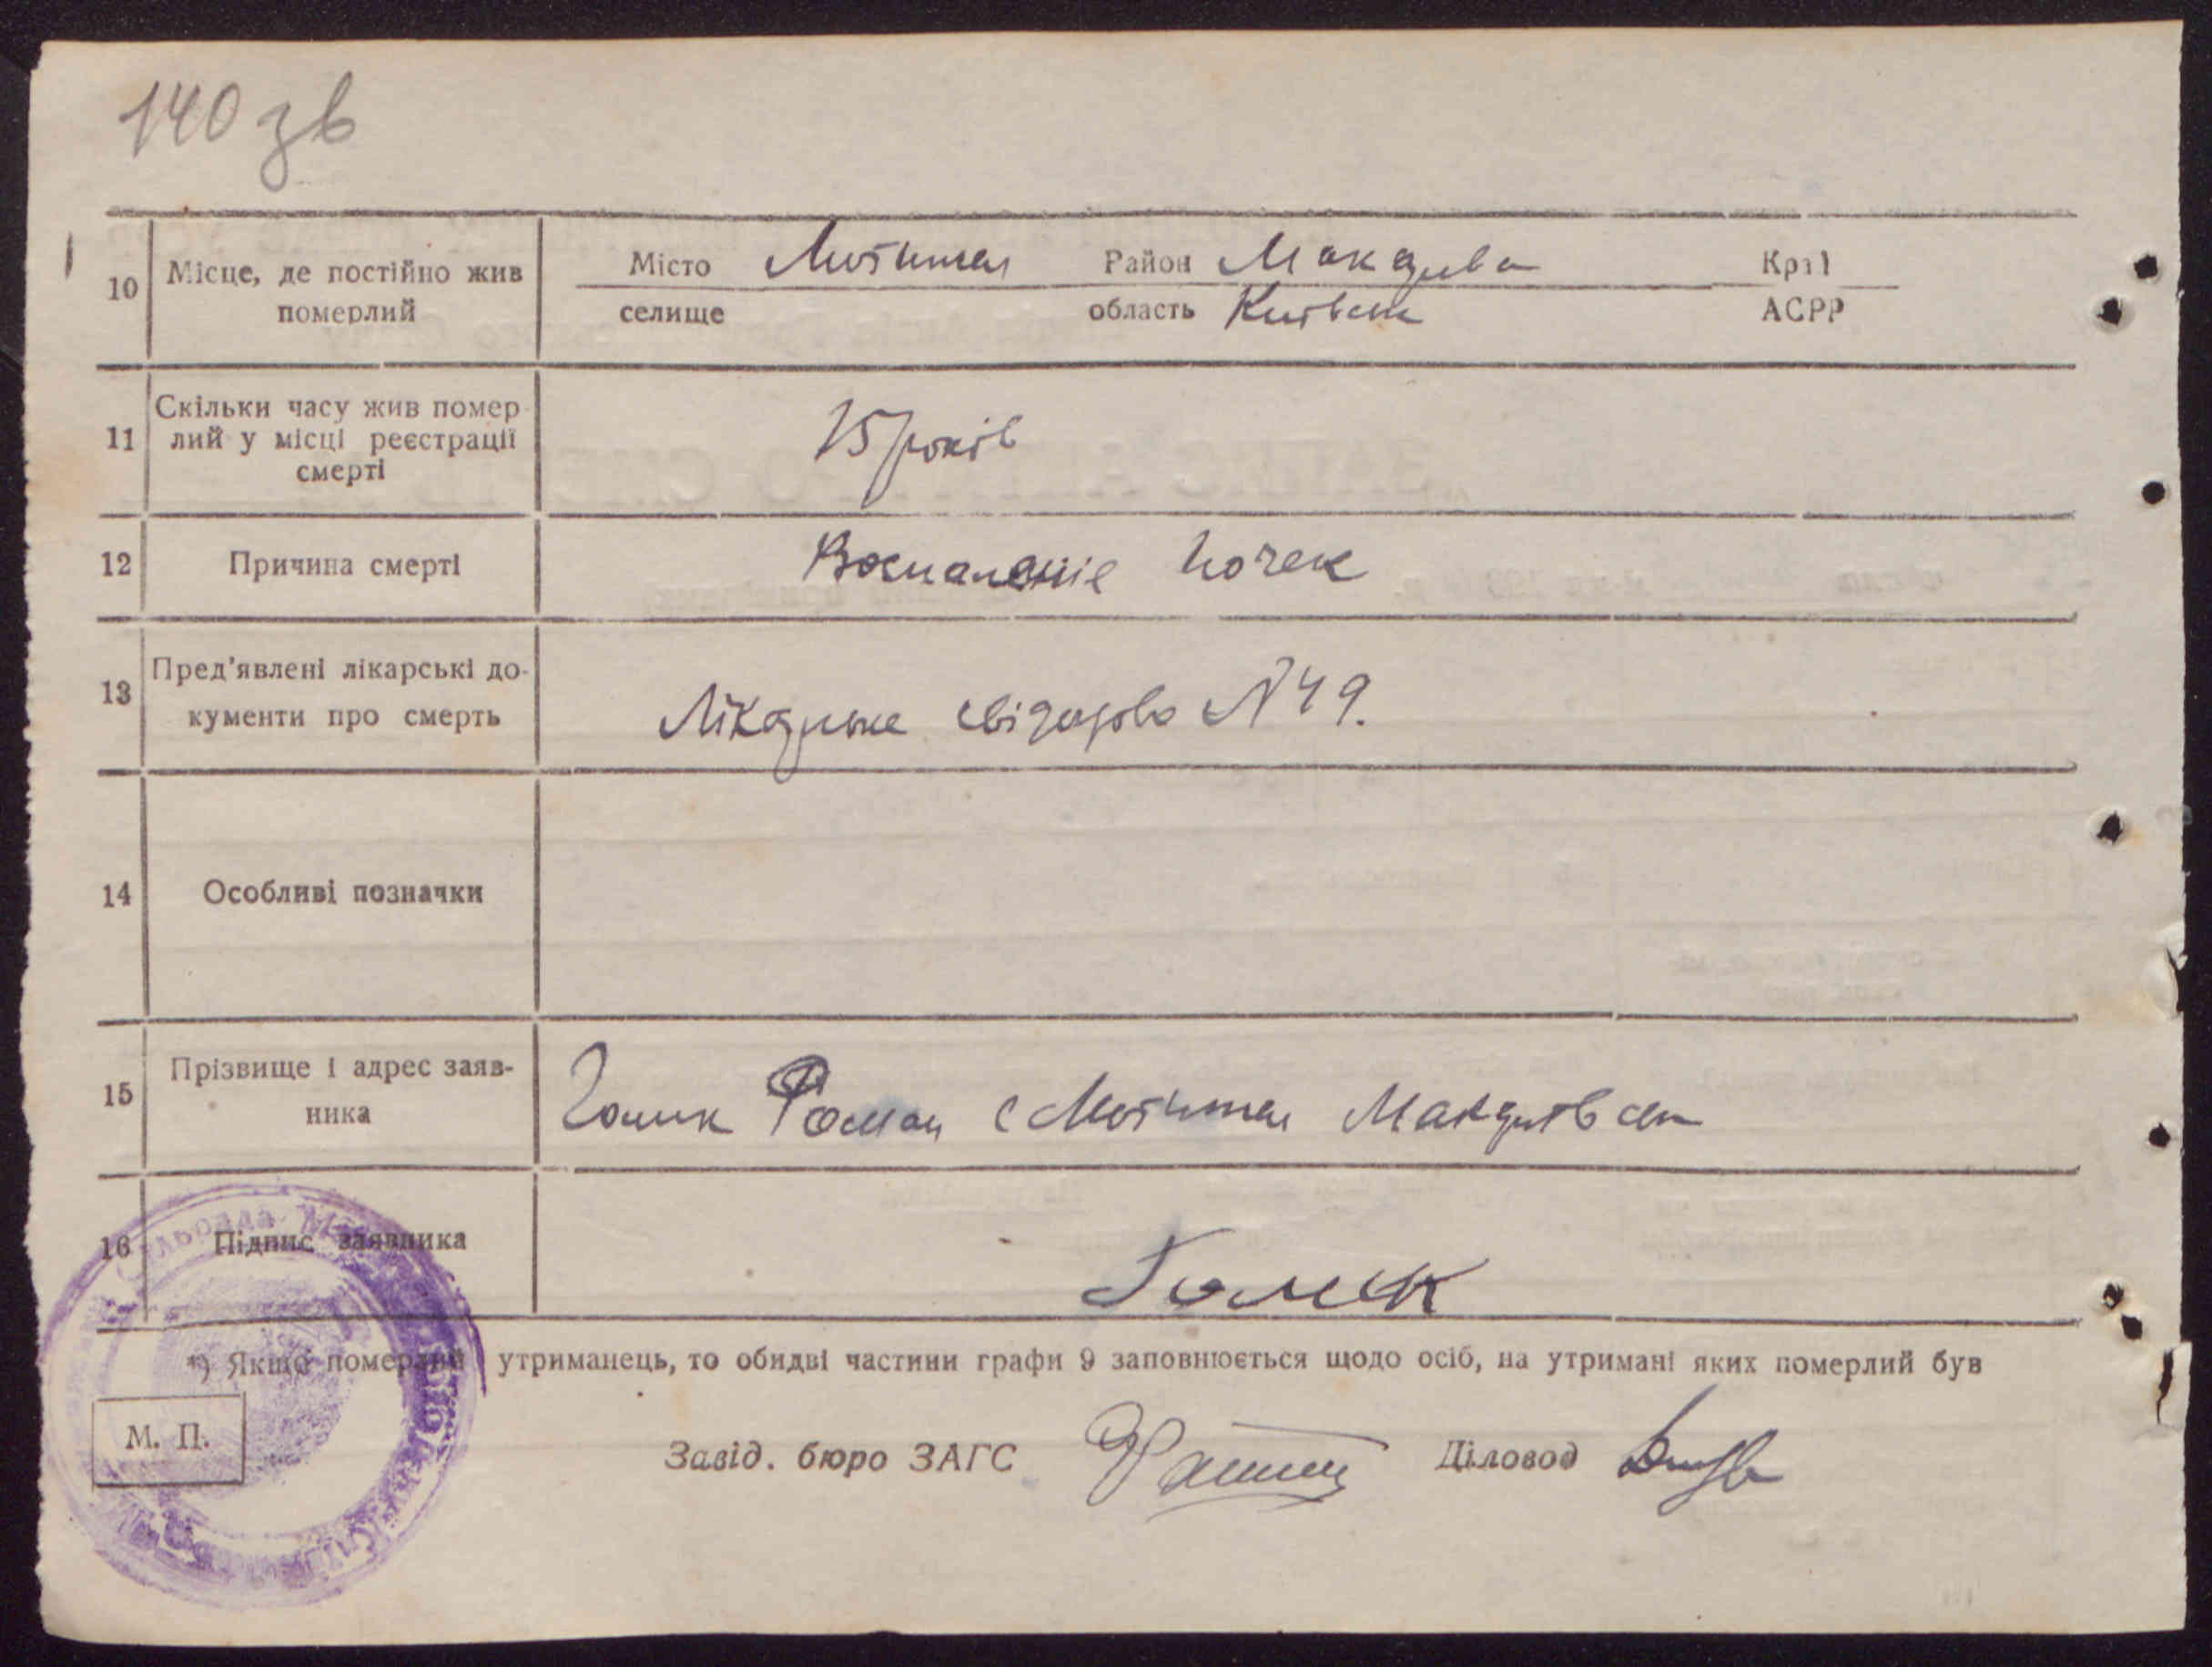 140 зв
10 Місце, де постійно жив померлий
Місто Мотижин Район Макарів Край
селище область Київськ АСРР
11 Скільки часу жив помер-
лий у місці реєстрації
смерті
75 років
12 Причина смерті Воспаленіе почек
13 Пред'явлені лікарські до-
кументи про смерть
Лікарське свідоцтво N 49.
14 Особливі позначки
15 Прізвище і адрес заяв-
ника
Голик Роман с Мотижин Макарівськ
16 Підпис заявника
Голик
*) Якщо померлий утриманець, то обидві частини графи 9 заповнюється щодо осіб, на утримані яких померлий був
М. П.
Завід. бюро ЗАГС Діловод